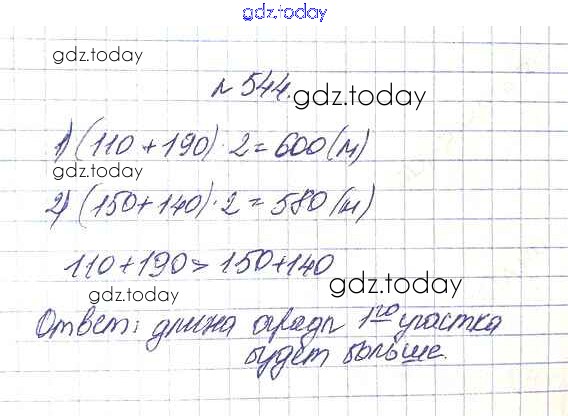 gdz.today
gdz.today
№ 544.
gdz.today
1) (110 + 190) · 2 = 600 (м)
gdz.today
2) (150 + 140) · 2 = 580 (м)
110 + 190 > 150 + 140
gdz.today
gdz.today
Ответ: длина ограды 1го участка
будет больше.